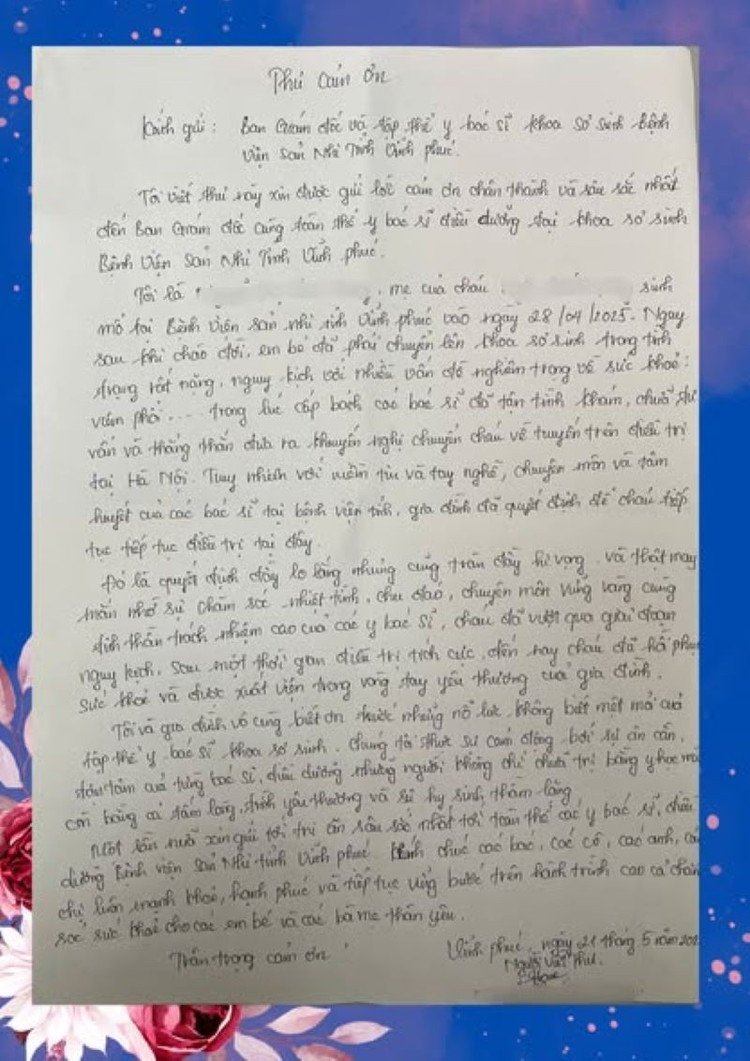 Thư cảm ơn
Kính gửi: Ban Giám đốc và tập thể y bác sĩ khoa sơ sinh Bệnh
Viện Sản Nhi Tỉnh Vĩnh Phúc.
Tôi viết thư này xin được gửi lời cảm ơn chân thành và sâu sắc nhất
đến Ban Giám đốc cùng toàn thể y bác sĩ điều dưỡng tại khoa sơ sinh
Bệnh Viện Sản Nhi Tỉnh Vĩnh Phúc.
Tôi là , mẹ của cháu sinh
mổ tại Bệnh Viện sản nhi tỉnh Vĩnh phúc vào ngày 28/04/2025. Ngay
sau khi chào đời, em bé đã phải chuyển lên khoa sơ sinh trong tình
trạng rất nặng, nguy kịch với nhiều vấn đề nghiêm trọng về sức khoẻ:
viêm phổi.... trong lúc cấp bách các bác sĩ đã tận tình khám, chữa tư
vấn và thẳng thắn đưa ra khuyến nghị chuyển cháu về tuyến trên điều trị
tại Hà Nội. Tuy nhiên với niềm tin và tay nghề, chuyên môn và tâm
huyết của các bác sĩ tại bệnh viện tỉnh, gia đình đã quyết định để cháu tiếp
tục tiếp tục điều trị tại đây.
Đó là quyết định đầy lo lắng nhưng cũng tràn đầy hi vọng. và thật may
mắn nhờ sự chăm sóc nhiệt tình, chu đáo, chuyên môn vững vàng cùng
tinh thần trách nhiệm cao của các y bác sĩ, cháu đã vượt qua giai đoạn
nguy kịch. sau một thời gian điều trị tích cực, đến nay cháu đã hồi phục
sức khoẻ và được xuất viện trong vòng tay yêu thương của gia đình.
Tôi và gia đình vô cùng biết ơn trước những nỗ lực không biết mệt mỏi của
tập thể y bác sĩ khoa sơ sinh. chúng tôi thực sự cảm động bởi sự ân cần,
tận tâm của từng bác sĩ, điều dưỡng những người không chỉ chữa trị bằng y học mà
còn bằng cả tấm lòng, tình yêu thương và sự hy sinh thầm lặng
Một lần nữa xin gửi tới tri ân sâu sắc nhất tới toàn thể các y bác sĩ, điều
dưỡng Bệnh viện Sản Nhi tỉnh Vĩnh phúc. Kính chúc các bác, các cô, các anh, các
chị luôn mạnh khoẻ, hạnh phúc và tiếp tục vững bước trên hành trình cao cả chăm
sóc sức khoẻ cho các em bé và các bà mẹ thân yêu.
Trân trọng cảm ơn!
Vĩnh phúc, ngày 21 tháng 5 năm 202
Người viết thư.